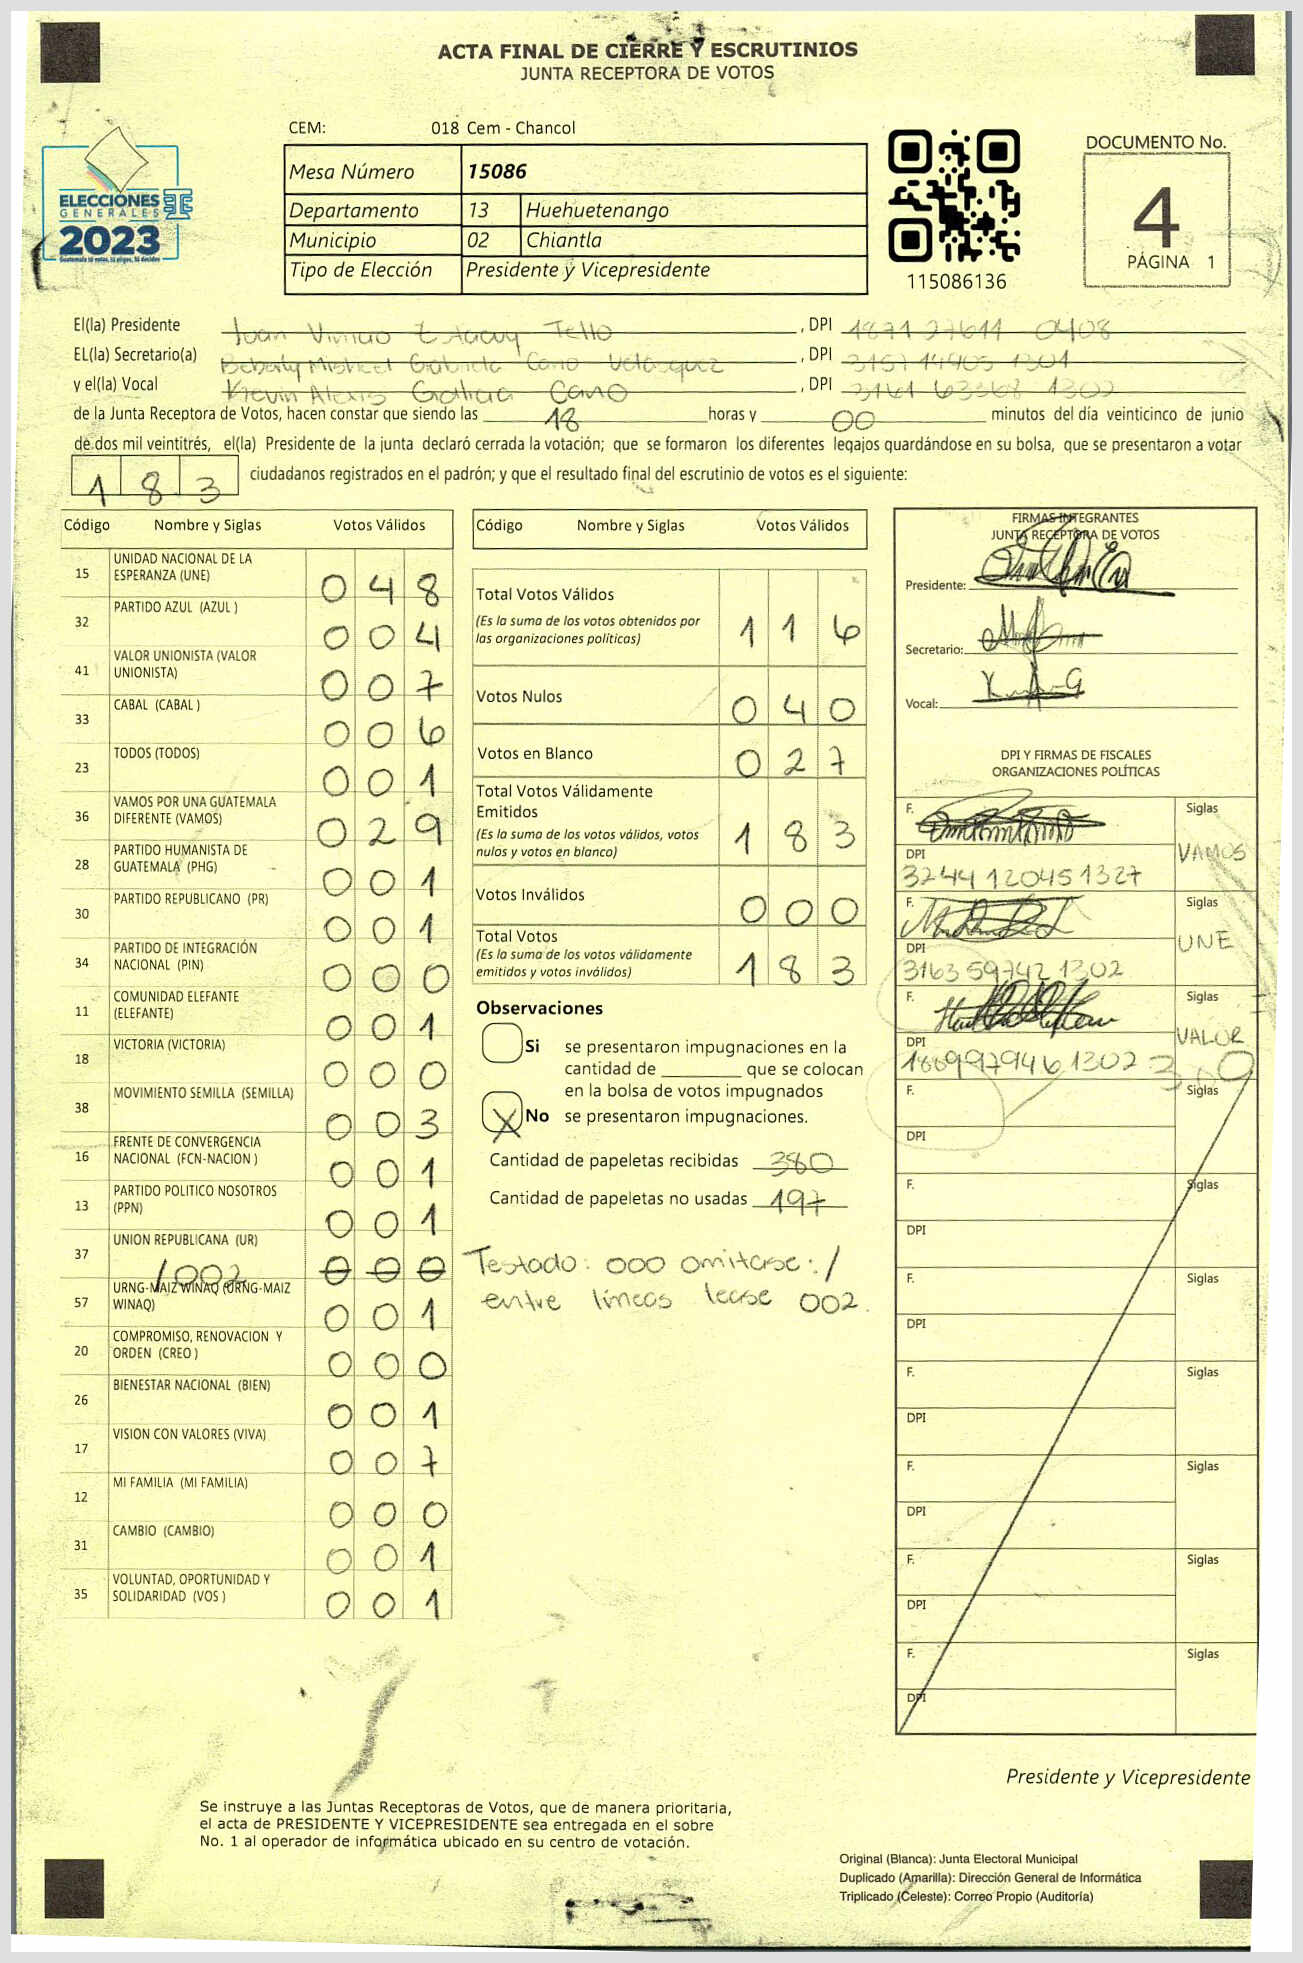 ACTA FINAL DE CIERRE Y ESCRUTINIOS
JUNTA RECEPTORA DE VOTOS
CEM: 018 Cem - Chancol
Mesa Número 15086
Departamento 13 Huehuetenango
Municipio 02 Chiantla
Tipo de Elección Presidente y Vicepresidente
ELECCIONES
GENERALES
2023
Guatemala tú votas, tú eliges, tú decides
115086136
DOCUMENTO No.
4
PÁGINA 1
El(la) Presidente Juan Tello , DPI 1871 27611 0408
EL(la) Secretario(a) Gabriela Cano Velásquez , DPI 3157 14405 1301
y el(la) Vocal Kevin Alexis Galicia Cano , DPI 3161 63368 1302
de la Junta Receptora de Votos, hacen constar que siendo las 18 horas y 00 minutos del día veinticinco de junio
de dos mil veintitrés, el(la) Presidente de la junta declaró cerrada la votación; que se formaron los diferentes legajos guardándose en su bolsa, que se presentaron a votar
183 ciudadanos registrados en el padrón; y que el resultado final del escrutinio de votos es el siguiente:
Código Nombre y Siglas Votos Válidos
15 UNIDAD NACIONAL DE LA ESPERANZA (UNE) 048
32 PARTIDO AZUL (AZUL ) 004
41 VALOR UNIONISTA (VALOR UNIONISTA) 007
33 CABAL (CABAL ) 006
23 TODOS (TODOS) 001
36 VAMOS POR UNA GUATEMALA DIFERENTE (VAMOS) 029
28 PARTIDO HUMANISTA DE GUATEMALA (PHG) 001
30 PARTIDO REPUBLICANO (PR) 001
34 PARTIDO DE INTEGRACIÓN NACIONAL (PIN) 000
11 COMUNIDAD ELEFANTE (ELEFANTE) 001
18 VICTORIA (VICTORIA) 000
38 MOVIMIENTO SEMILLA (SEMILLA) 003
16 FRENTE DE CONVERGENCIA NACIONAL (FCN-NACION ) 001
13 PARTIDO POLITICO NOSOTROS (PPN) 001
37 UNION REPUBLICANA (UR) 000
/002
57 URNG-MAIZ WINAQ (URNG-MAIZ WINAQ) 001
20 COMPROMISO, RENOVACION Y ORDEN (CREO ) 000
26 BIENESTAR NACIONAL (BIEN) 001
17 VISION CON VALORES (VIVA) 007
12 MI FAMILIA (MI FAMILIA) 000
31 CAMBIO (CAMBIO) 001
35 VOLUNTAD, OPORTUNIDAD Y SOLIDARIDAD (VOS ) 001
Código Nombre y Siglas Votos Válidos
Total Votos Válidos 116
(Es la suma de los votos obtenidos por
las organizaciones políticas)
Votos Nulos 040
Votos en Blanco 027
Total Votos Válidamente
Emitidos 183
(Es la suma de los votos válidos, votos
nulos y votos en blanco)
Votos Inválidos 000
Total Votos 183
(Es la suma de los votos válidamente
emitidos y votos inválidos)
Observaciones
Si se presentaron impugnaciones en la
cantidad de ________ que se colocan
en la bolsa de votos impugnados
X No se presentaron impugnaciones.
Cantidad de papeletas recibidas 380
Cantidad de papeletas no usadas 197
Testado: 000 omitase: /
entre líneas lease 002.
FIRMAS INTEGRANTES
JUNTA RECEPTORA DE VOTOS
Presidente:
Secretario:
Vocal:
DPI Y FIRMAS DE FISCALES
ORGANIZACIONES POLÍTICAS
F. Siglas
VAMOS
DPI
3244 12045 1327
F. Siglas
UNE
DPI
3163 59742 1302
F. Siglas
VALOR
DPI
1889979461302
F. Siglas
DPI
F. Siglas
DPI
F. Siglas
DPI
F. Siglas
DPI
F. Siglas
DPI
F. Siglas
DPI
F. Siglas
DPI
Presidente y Vicepresidente
Se instruye a las Juntas Receptoras de Votos, que de manera prioritaria,
el acta de PRESIDENTE Y VICEPRESIDENTE sea entregada en el sobre
No. 1 al operador de informática ubicado en su centro de votación.
Original (Blanca): Junta Electoral Municipal
Duplicado (Amarilla): Dirección General de Informática
Triplicado (Celeste): Correo Propio (Auditoría)